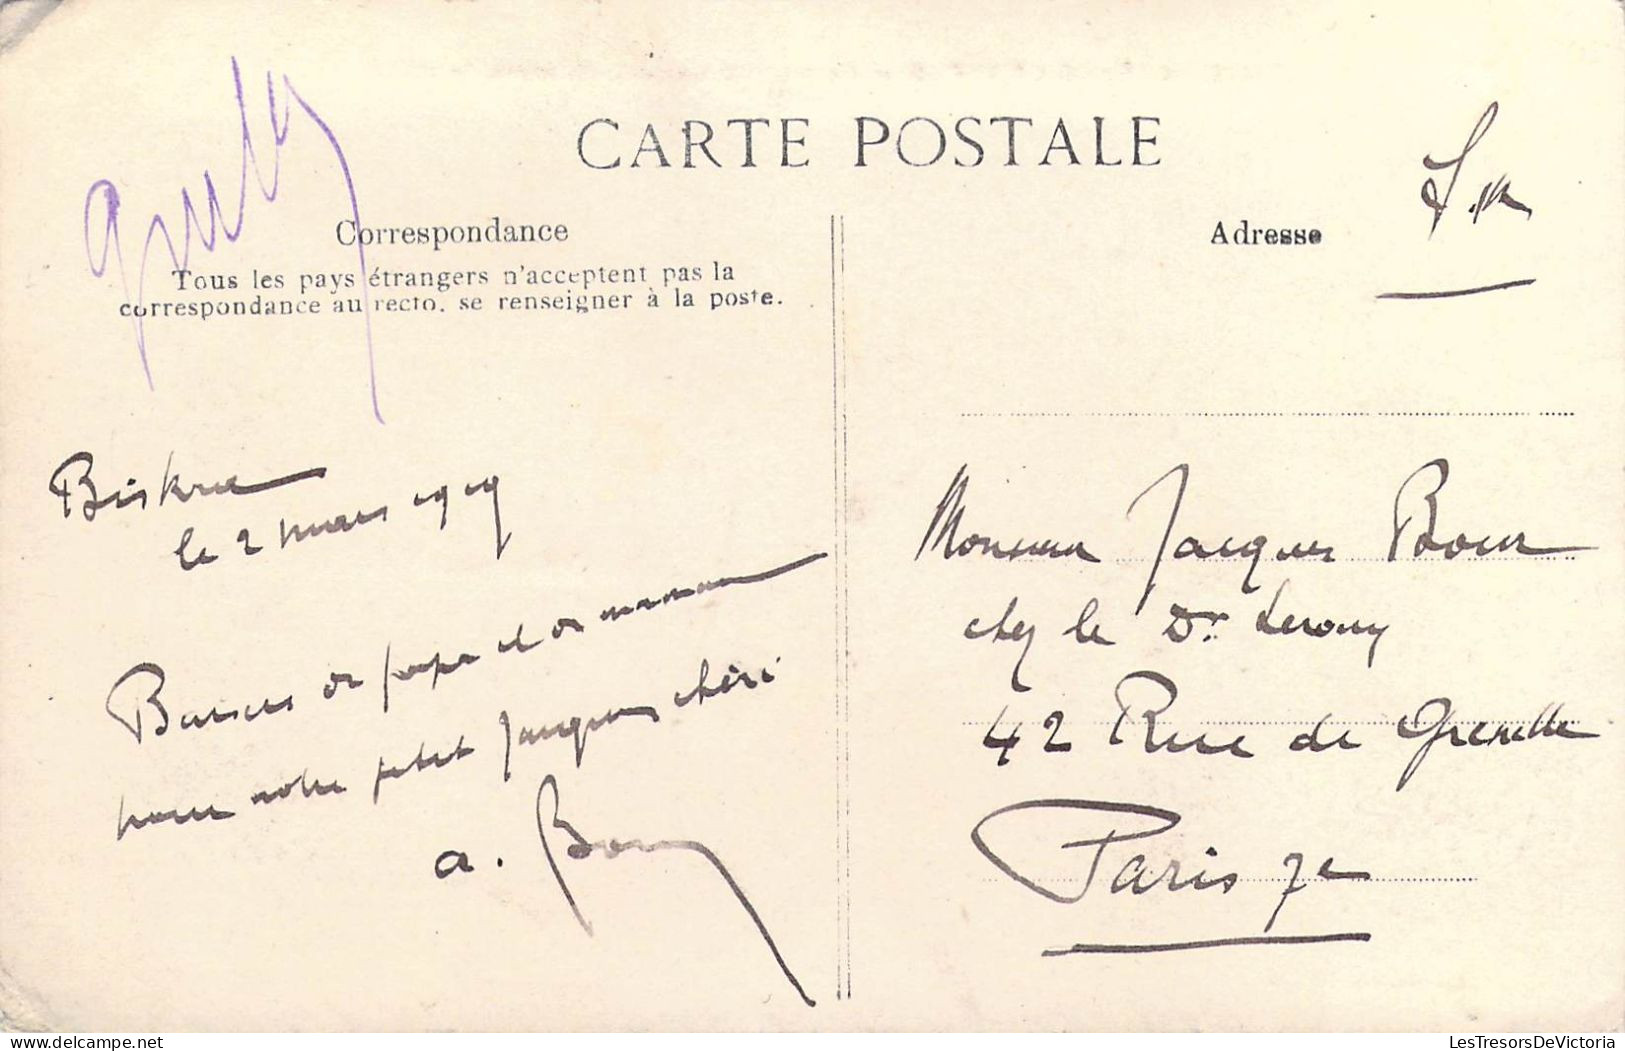 CARTE POSTALE
Correspondance
Tous les pays étrangers n'acceptent pas la
correspondance au recto, se renseigner à la poste.
Biskra
le 2 mars 1919
Baisers de papa et de maman
pour notre petit Jacques chéri
a. Bour
Adresse
F.M
Monsieur Jacques Bour
chez le Dr Leroux
42 Rue de Grenelle
Paris 7e
LesTresorsDeVictoria
delcampe.net